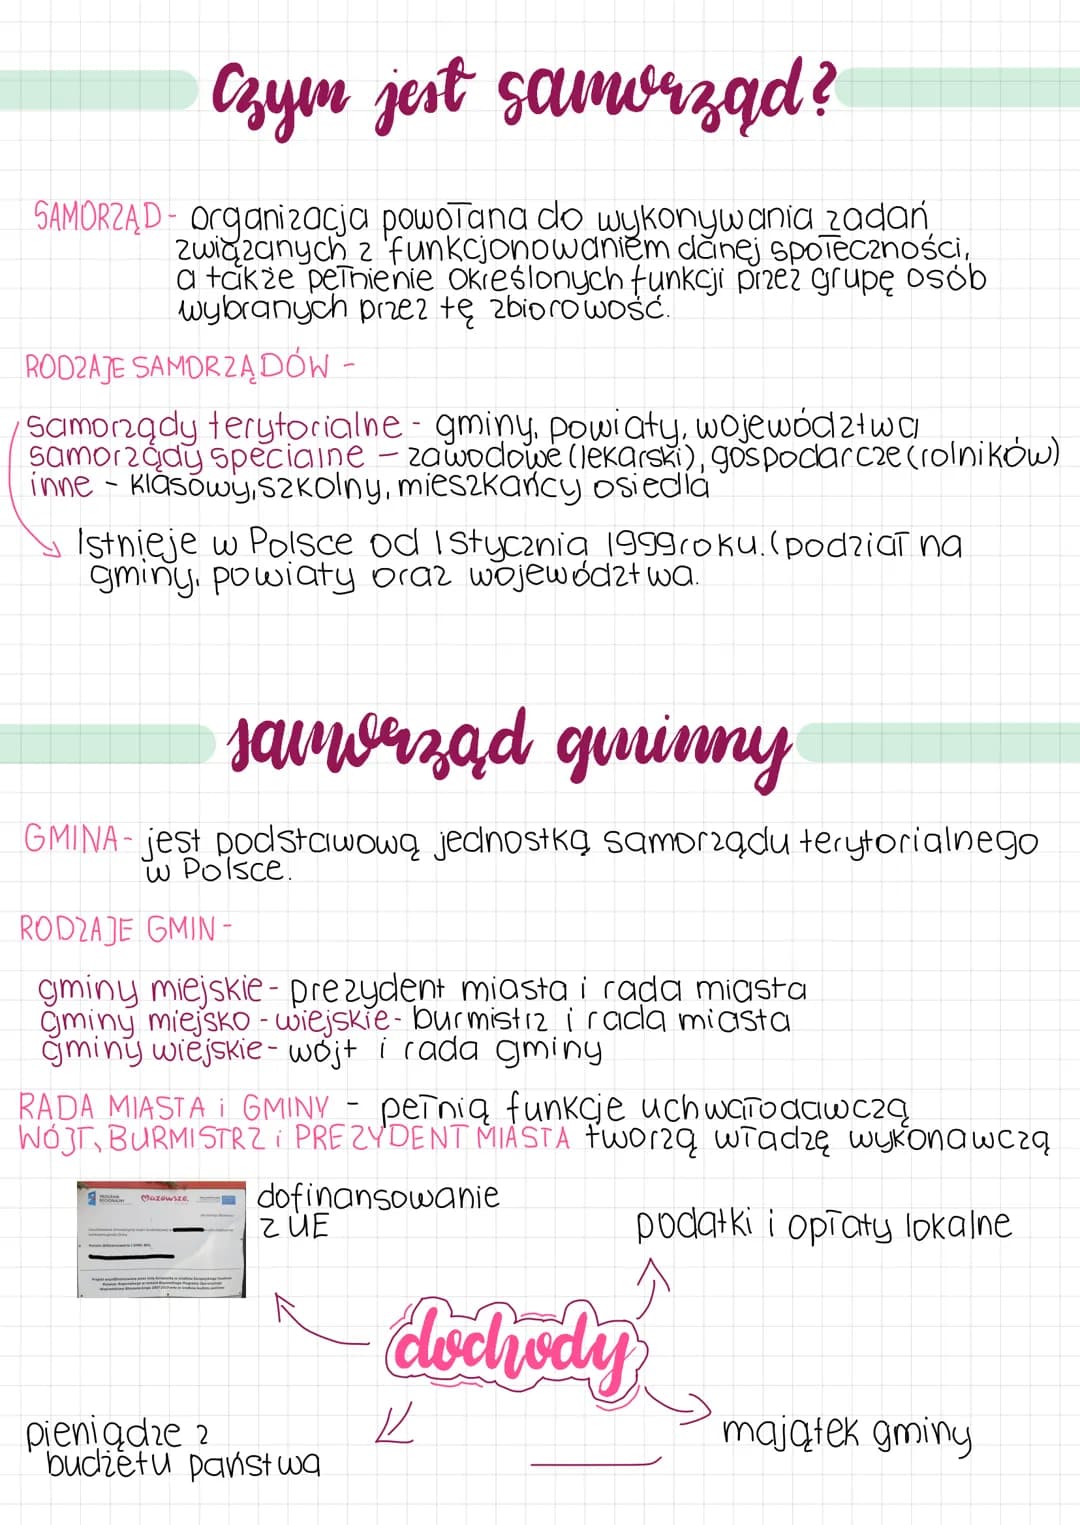 Czym jest samorząd?
SAMORZĄD - organizacja powołana do wykonywania zadań
związanych z funkcjonowaniem danej społeczności,
a także pełnienie określonych funkcji przez grupę osób
wybranych przez tę zbiorowość.
RODZAJE SAMORZĄDÓW -
samorządy terytorialne - gminy, powiaty, województwa
samorządy specjalne - zawodowe (lekarski), gospodarcze (rolników)
inne - klasowy, szkolny, mieszkańcy osiedla
Istnieje w Polsce od 1 stycznia 1999 roku. (podział na
gminy, powiaty oraz województwa.
samorząd gminny
GMINA - jest podstawową jednostką samorządu terytorialnego
w Polsce.
RODZAJE GMIN -
gminy miejskie - prezydent miasta i rada miasta
gminy miejsko - wiejskie - burmistrz i rada miasta
gminy wiejskie - wójt i rada gminy
RADA MIASTA i GMINY - pełnią funkcje uchwałodawczą
WÓJT, BURMISTRZ i PREZYDENT MIASTA tworzą władzę wykonawczą
Mazowsze.
dofinansowanie
z UE
podatki i opłaty lokalne
dochody
pieniądze z
budżetu państwa
majątek gminy